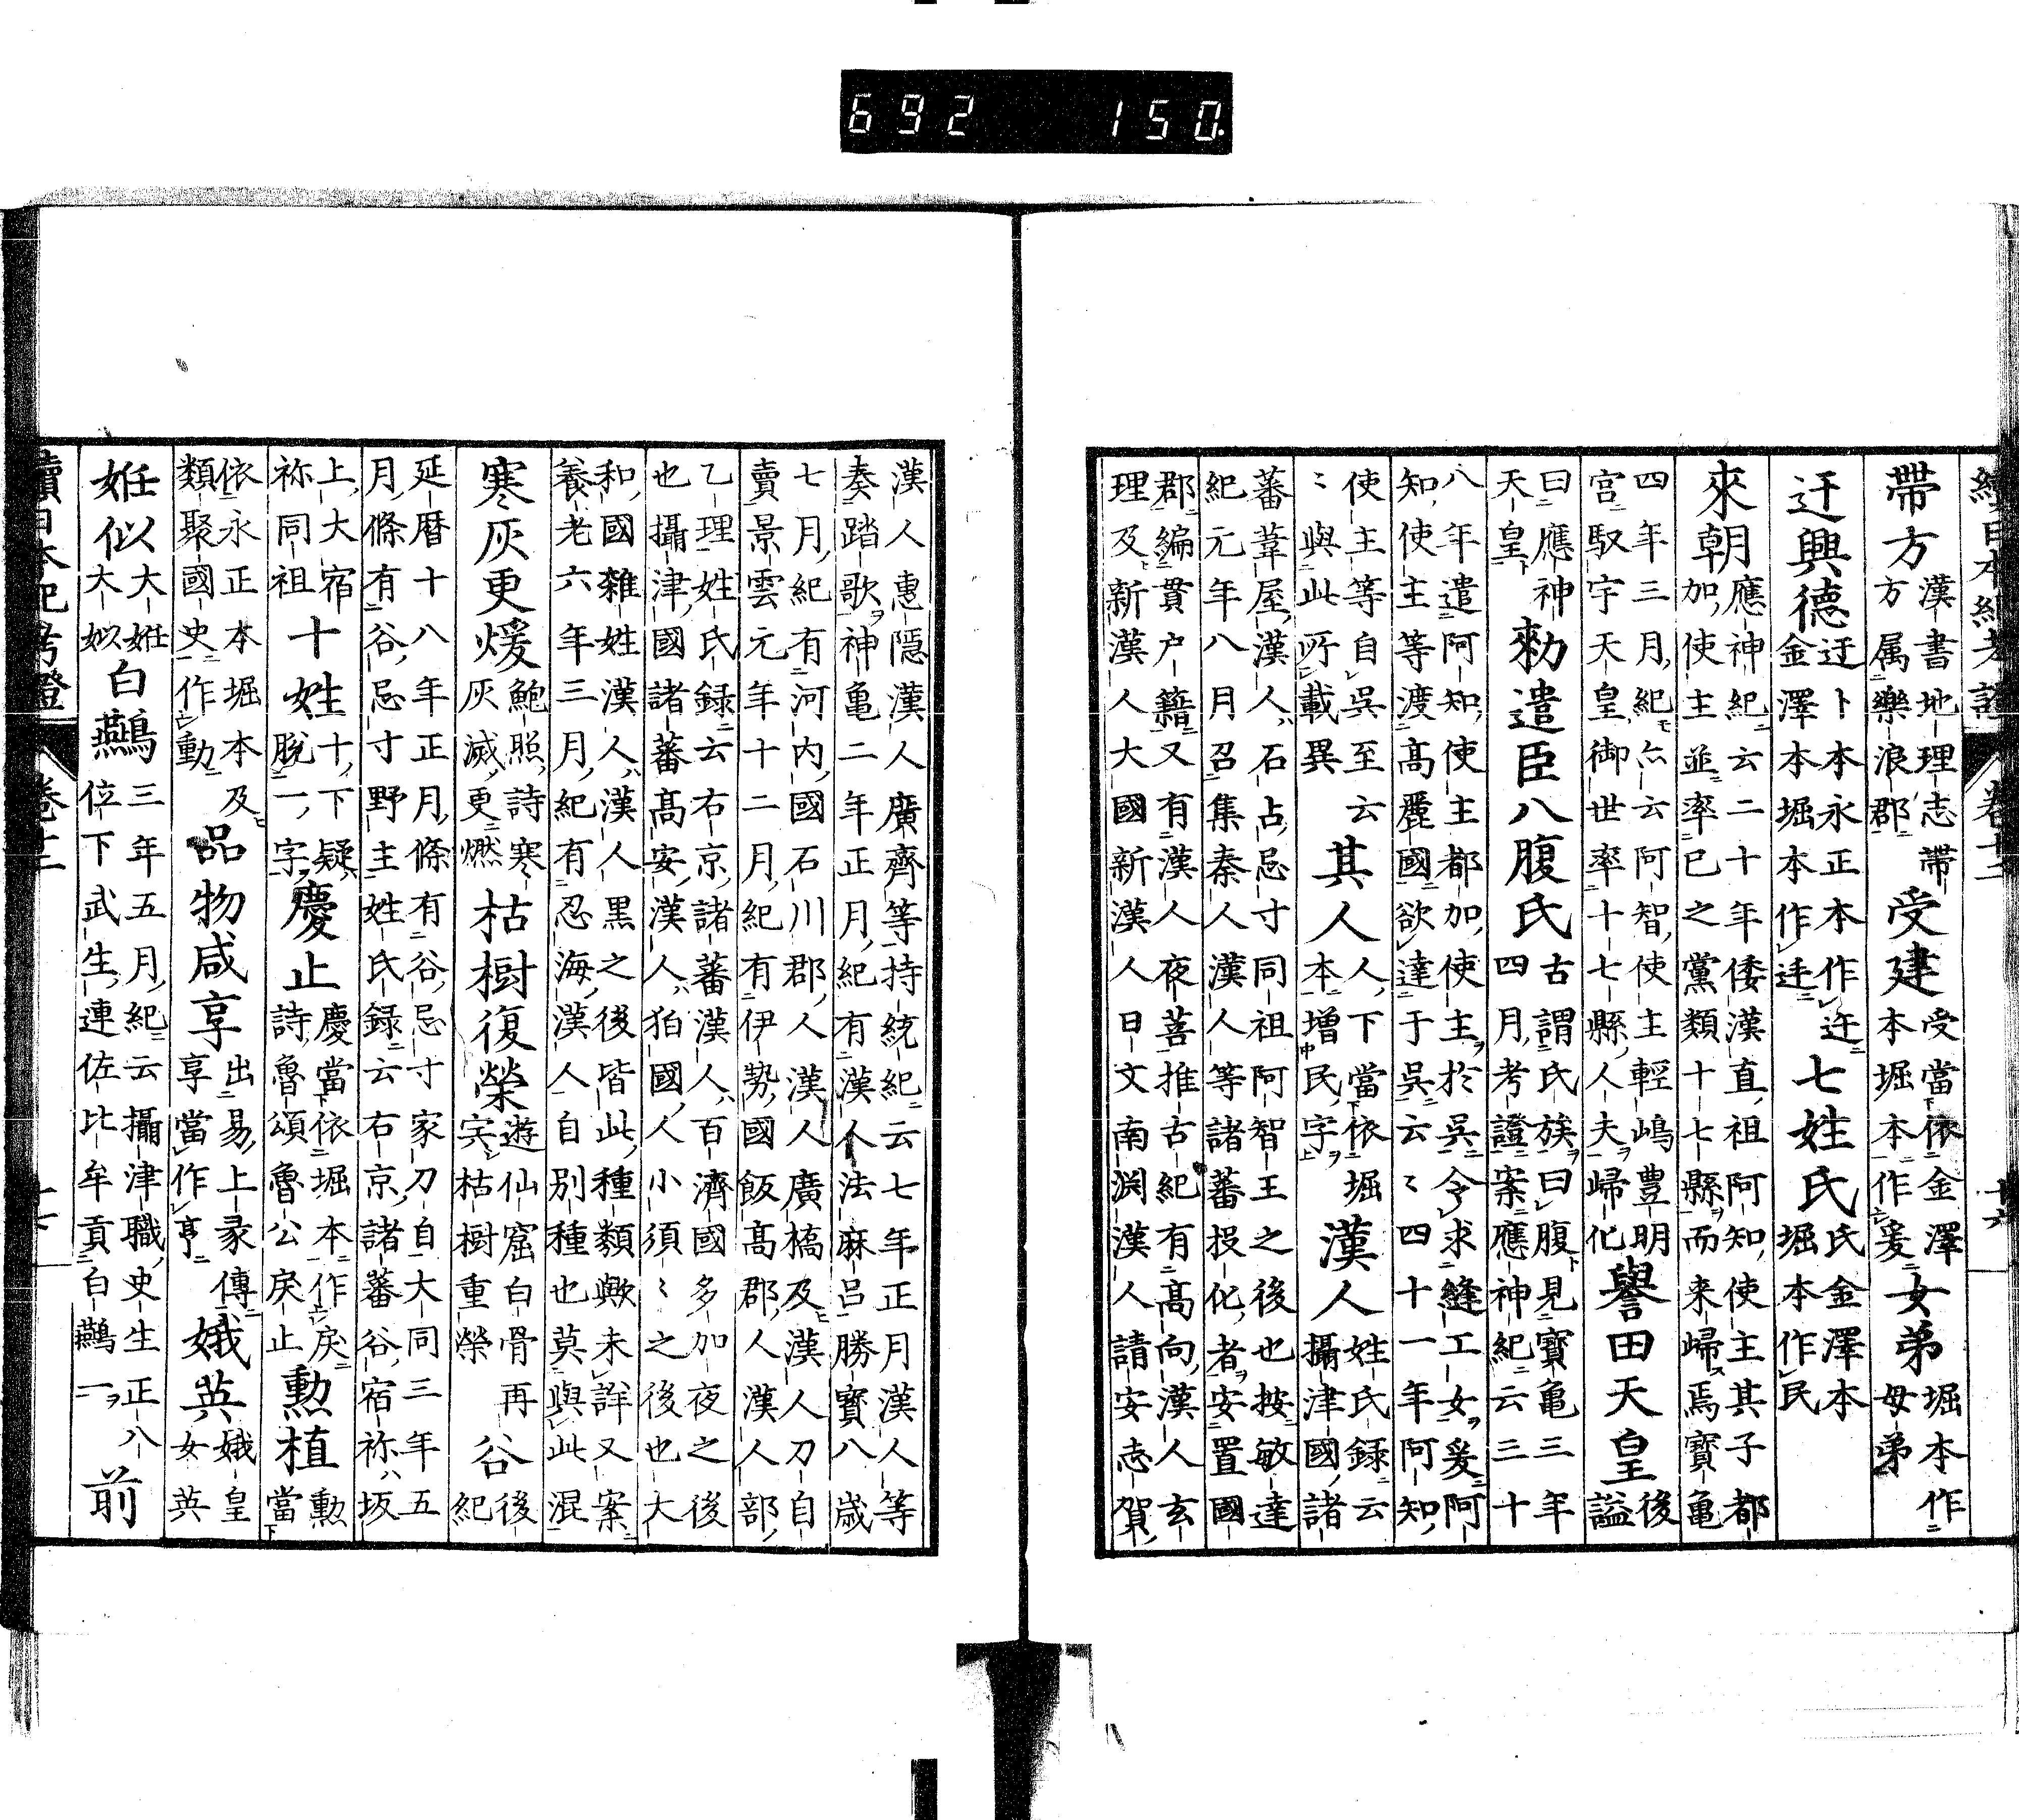 692 150.
帶方漢書地理志帶
方属樂浪郡受建受當依金澤
本堀本作爰女弟堀本作
母弟
迂興德迂卜本永正本作迕
金澤本堀本作迋七姓氏氏金澤本
堀本作民
來朝應神紀云二十年倭漢直祖阿知使主其子都
加使主並率己之黨類十七縣而来歸焉寶亀
四年三月紀亦云阿智使主輕嶋豊明
宮馭宇天皇御世率十七縣人夫歸化譽田天皇後
謚
曰應神
天皇勑遣臣八腹氏古謂氏族曰腹見寶亀三年
四月考證案應神紀云三十
八年遣阿知使主都加使主於吳令求縫工女爰阿
知使主等渡高麗國欲達于吳云〻四十一年阿知
使主等自吳至云
〻與此所載異其人人下當依堀
本增民字漢人姓氏録云
攝津國諸
蕃葦屋漢人石占忌寸同祖阿智王之後也按敏達
紀元年八月召集秦人漢人等諸蕃投化者安置國
郡編貫戸籍又有漢人夜菩推古紀有高向漢人玄
理及新漢人大國新漢人日文南渕漢人請安志賀
漢人惠隱漢人廣齊等持統紀云七年正月漢人等
奏踏歌神亀二年正月紀有漢人法麻呂勝寳八歳
七月紀有河内國石川郡人漢人廣橋及漢人刀自
賣景雲元年十二月紀有伊勢國飯高郡人漢人部
乙理姓氏録云右京諸蕃漢人百濟國多加夜之後
也攝津國諸蕃高安漢人狛國人小須〻之後也大
和國雜姓漢人漢人黒之後皆此種類歟未詳又案
養老六年三月紀有忍海漢人自別種也莫與此混
寒灰更煖鮑照詩寒
灰滅更燃枯樹復榮遊仙窟白骨再
宍枯樹重榮谷後
紀
延暦十八年正月條有谷忌寸家刀自大同三年五
月條有谷忌寸野主姓氏録云右京諸蕃谷宿祢坂
上大宿
祢同祖十姓十下疑
脫一字慶止慶當依堀本作戾
詩魯頌魯公戾止勲植勲
當
依永正本堀本及
類聚國史作動品物咸享出易上彖傳
享當作亨娥英娥皇
女英
姙似大姙
大姒白鷰三年五月紀云攝津職史生正八
位下武生連佐比牟貢白鷰一前
續日本紀考證 卷十二